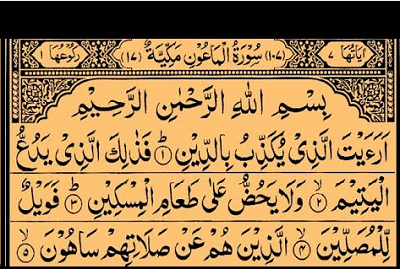 اٰيَاتُهَا ٧ (١٠٧) سُوْرَةُ الْمَاعُوْنِ مَكِّيَّةٌ (١٧) رُكُوْعُهَا ١
بِسْمِ اللّٰهِ الرَّحْمٰنِ الرَّحِيْمِ
اَرَءَيْتَ الَّذِيْ يُكَذِّبُ بِالدِّيْنِ ۝١ فَذٰلِكَ الَّذِيْ يَدُعُّ
الْيَتِيْمَ ۝٢ وَلَا يَحُضُّ عَلٰى طَعَامِ الْمِسْكِيْنِ ۝٣ فَوَيْلٌ
لِّلْمُصَلِّيْنَ ۝٤ الَّذِيْنَ هُمْ عَنْ صَلَاتِهِمْ سَاهُوْنَ ۝٥